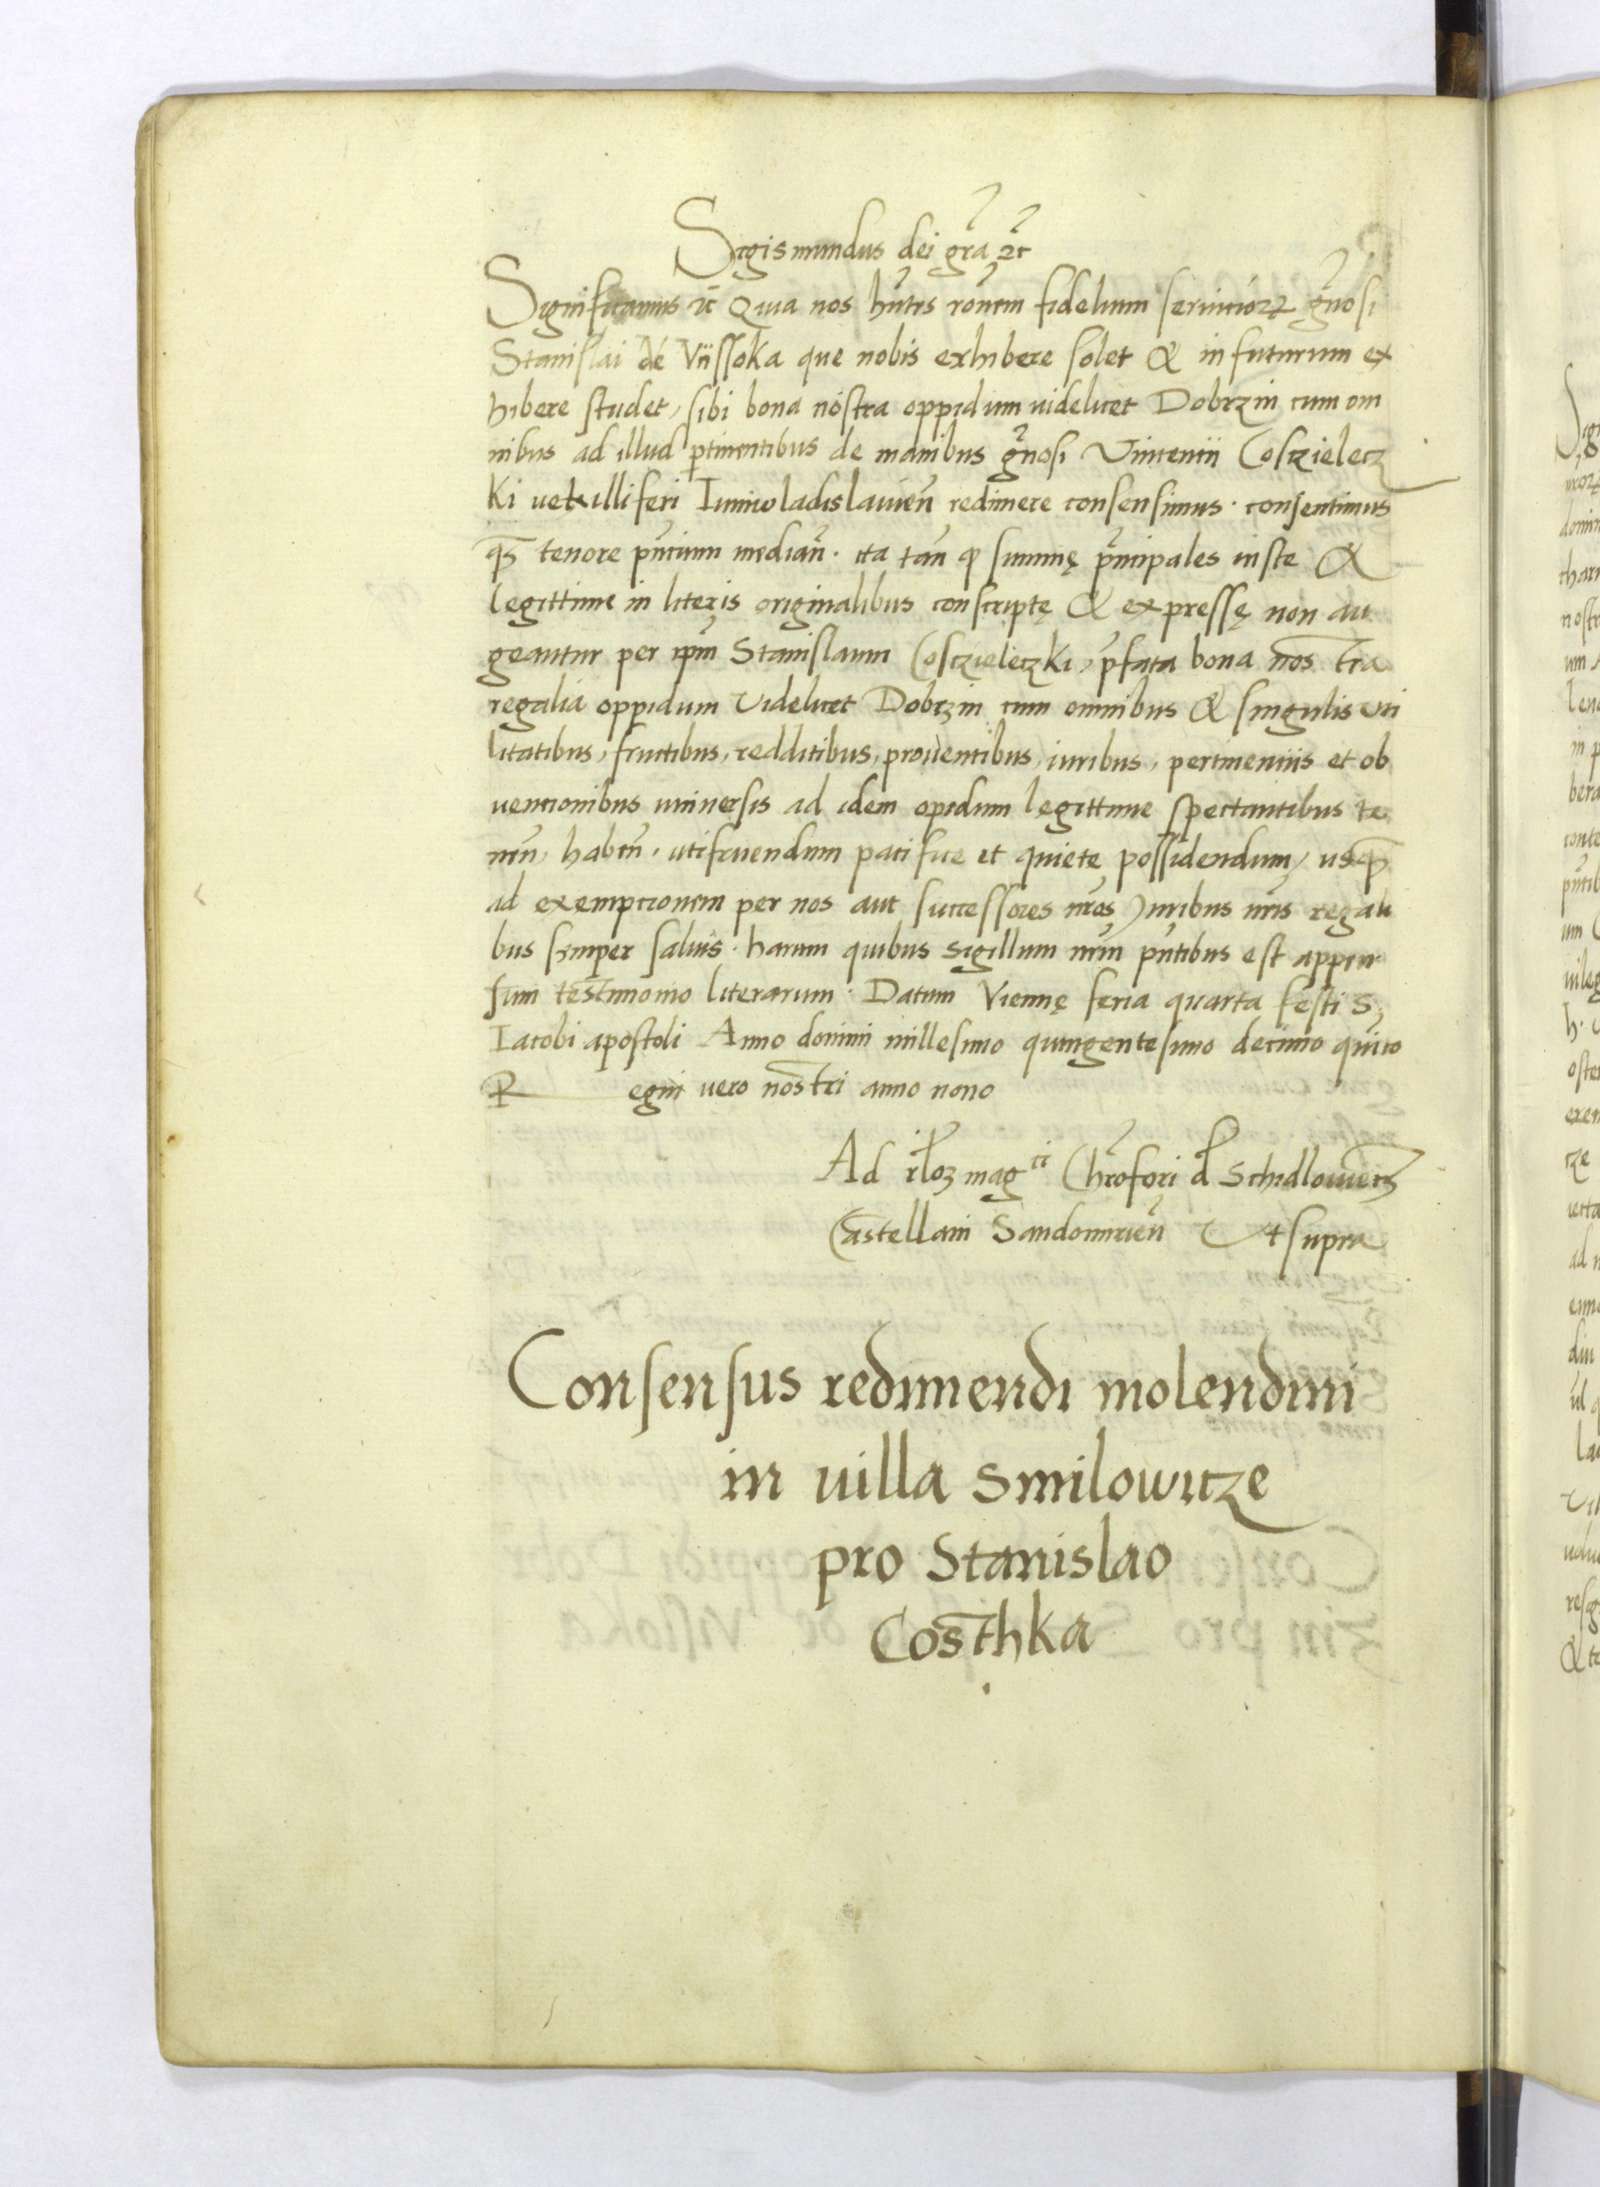 Sigismundus dei gra etc
Significamus etc Quia nos hntes ronem fidelium serviciorz gnosi
Stanislai de Vissoka que nobis exhibere solet & in futurum ex
hibere studet, sibi bona nostra oppidum videlicet Dobrzin cum om
nibus ad illud ptinentibus de manibus gnosi Vincentii Coszielecz
ki vexilliferi Iuniwladislauien redimere consensimus. consentimus
qz tenore pncium median. ita tan q summę pncipales iuste &
legittime in literis originalibus conscriptę & expressę non au
geantur per ipm Stanislaum Cosczieleczki, pfata bona nostra
regalia oppidum videlicet Dobrzin cum omnibus & singulis uti
litatibus, fructibus, redditibus, proventibus, iuribus, pertinenciis et ob
vencionibus universis ad idem opidum legittime spectantibus te
nen, haben, utifruendum pacifice et quiete possidendum, usqz
ad exempcionem per nos aut successores nros Iuribus nris regali
bus semper salvis. harum quibus sigillum nrm pntibus est appen
sum testimonio literarum. Datum Viennę feria quarta festi S.
Iacobi apostoli Anno domini millesimo quingentesimo decimo quito
R egni vero nostri anno nono
Ad rloz mag ci Chrofori d Schidlowiecz
Castellani Sandomirien Ut supra
Consensus redimendi molendini
in villa Smilowicze
pro Stanislao
Costhka